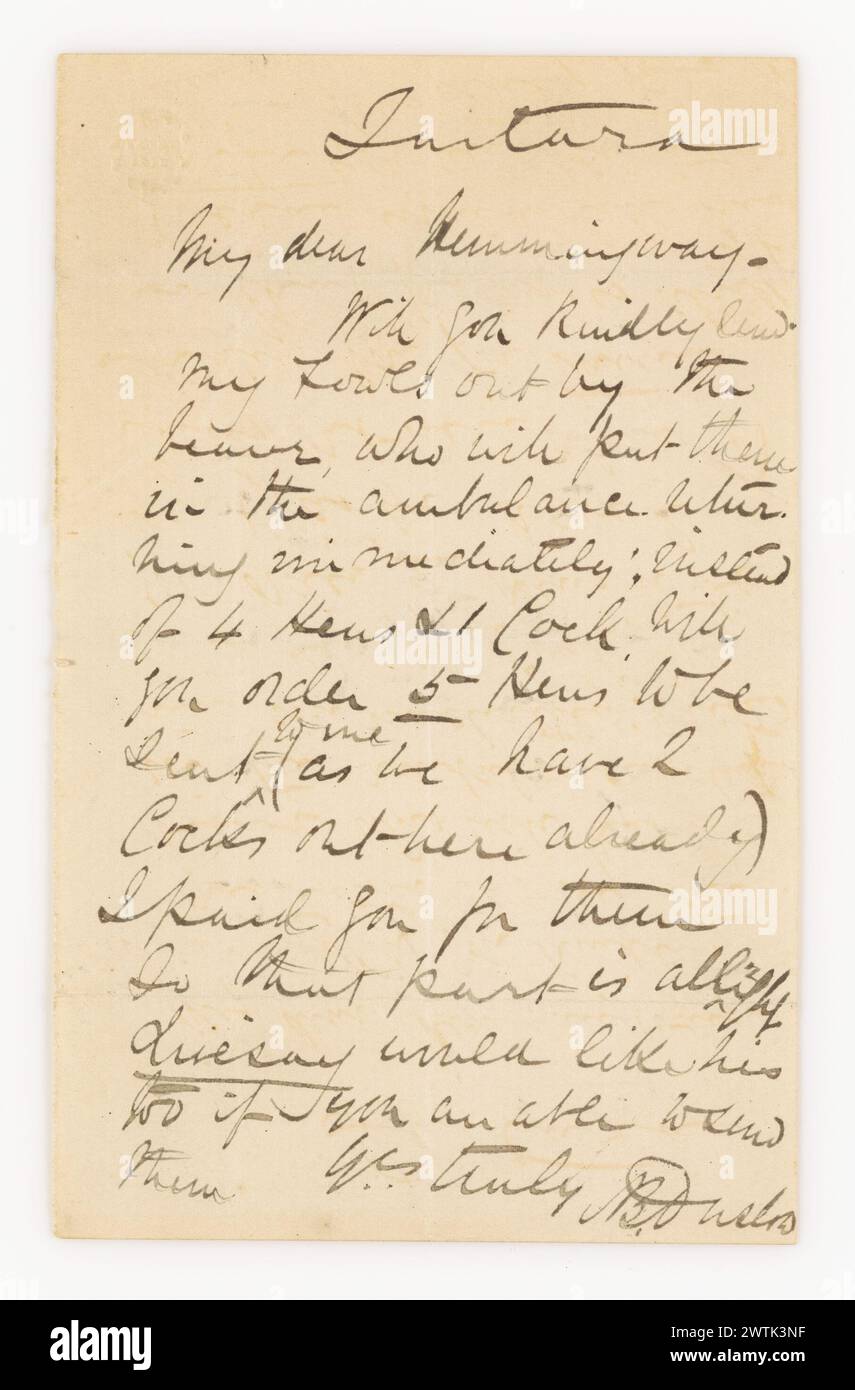 My dear Hemmingway -
Will you kindly send
my Fowls out by the
bearer, who will put them
in the ambulance retur-
ning immediately; instead
of 4 Hens & 1 Cock, will
you order 5 Hens to be
sent to me (as we have 2
Cocks out here already)
I paid you for them
So that part is all right
would like his
too if you are able to send
them Yrs truly
alamy
alamy
alamy
a
a
a
alamy
Image ID: 2WTK3NF
www.alamy.com